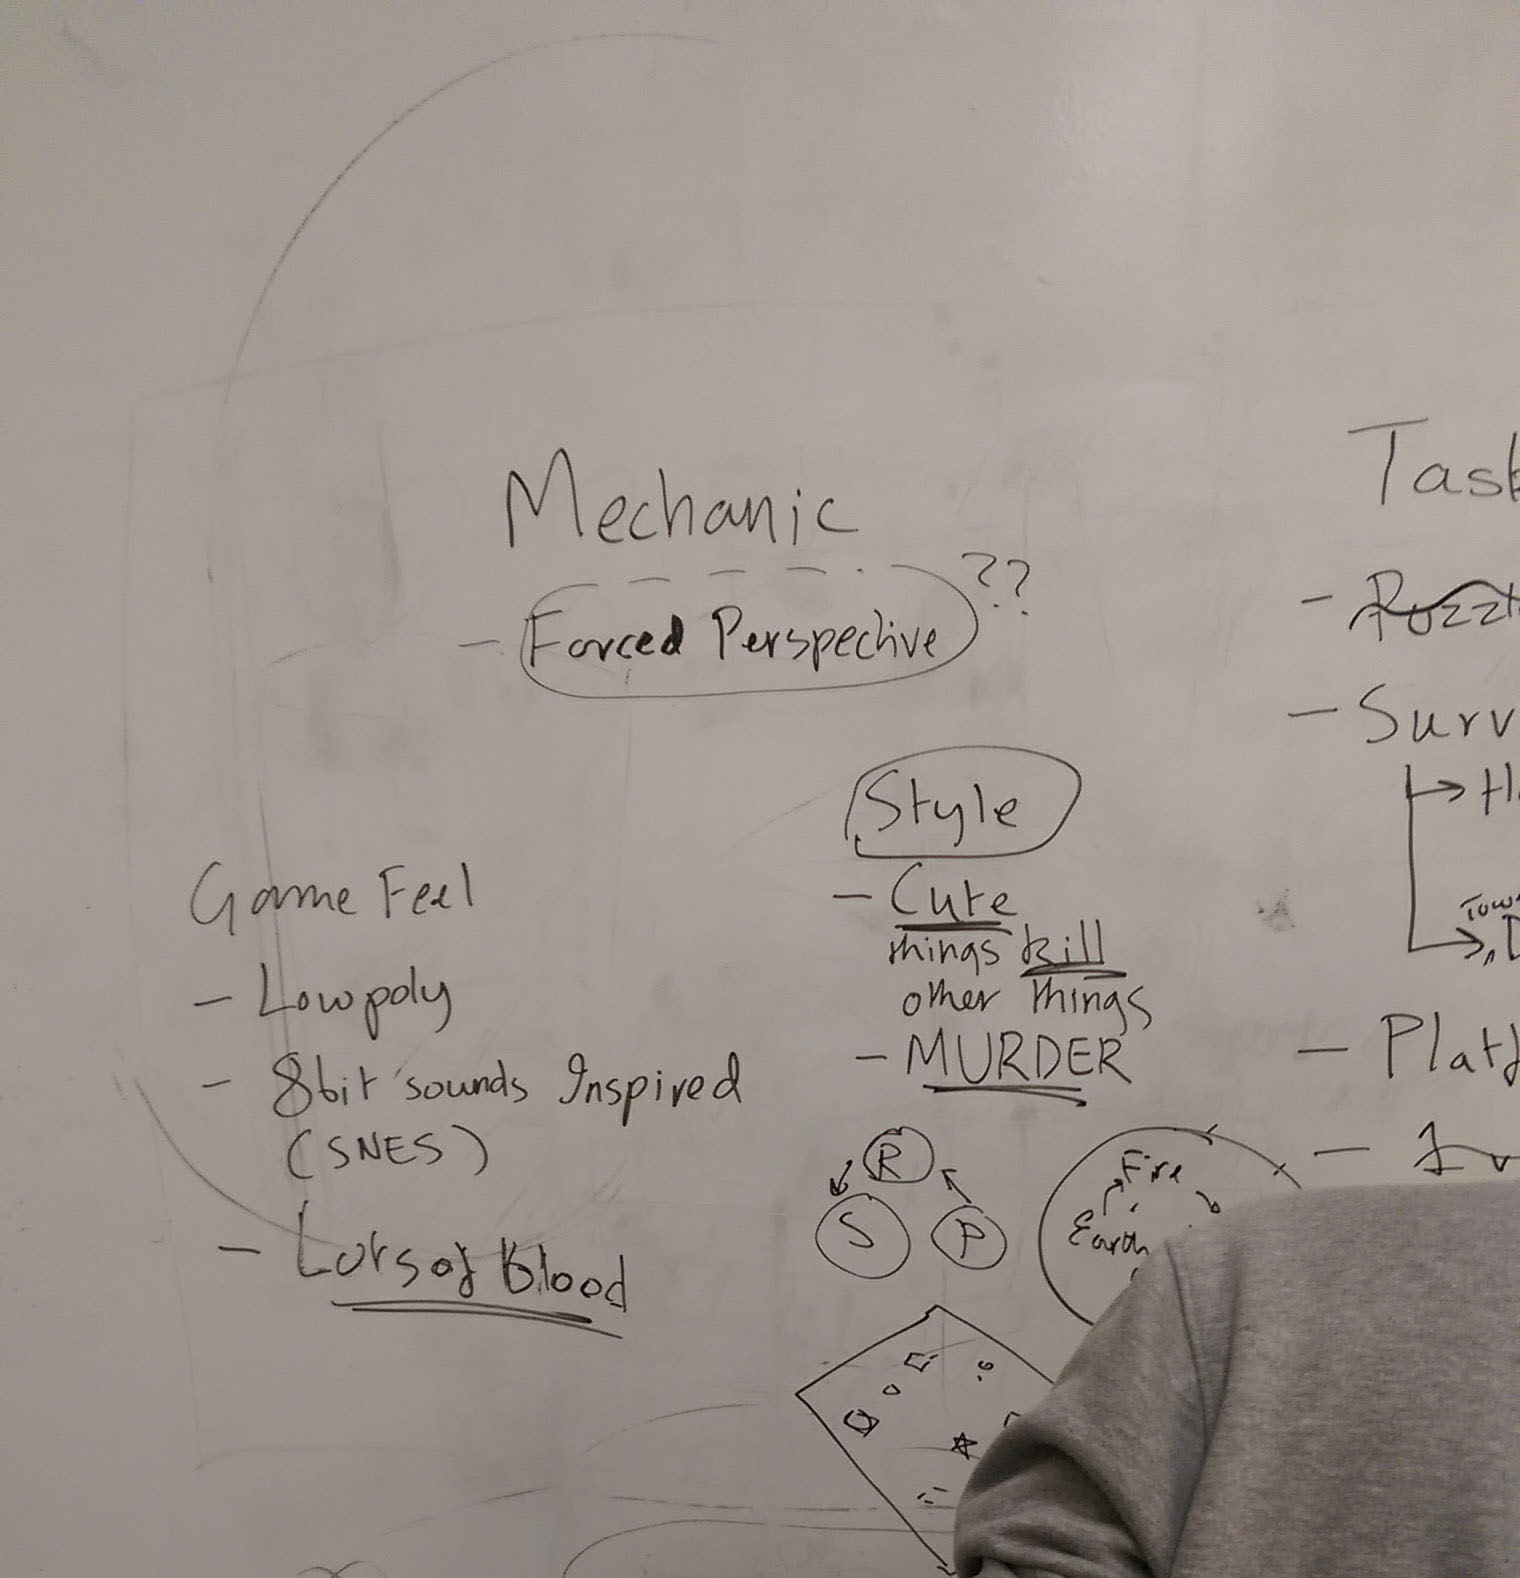 Mechanic
- Forced Perspective ??
Game Feel
- Lowpoly
- 8bit sounds Inspired
(SNES)
- Lots of Blood
Style
- Cute
things kill
other things
- MURDER
R
S P
Fire
Earth
Task
- Puzzl
- Surv
→ H
Tow
→ D
- Platf
-